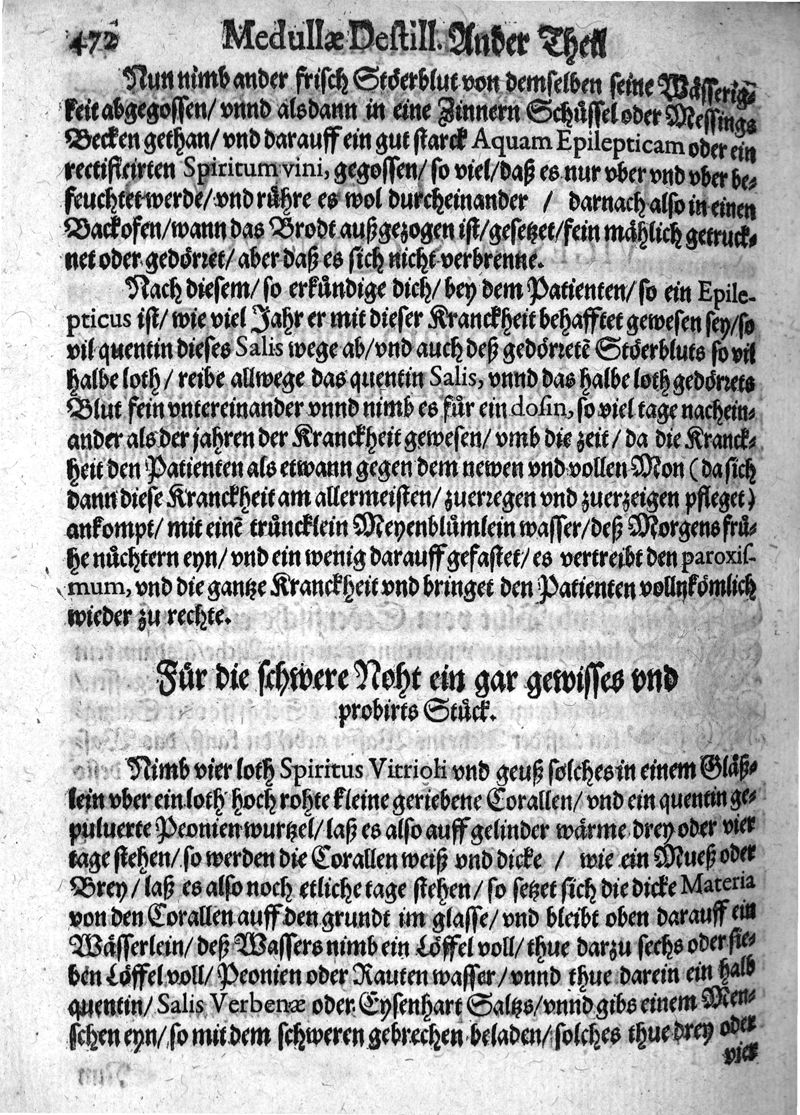 472 Medullæ Destill. Ander Theil
Nun nimb ander frisch Stöerblut von demselben seine Wässerig-
keit abgegossen/ vnnd alsdann in eine Zinnern Schüssel oder Messings
Becken gethan/ vnd darauff ein gut starck Aquam Epilepticam oder ein
rectificirten Spiritum vini, gegossen/ so viel/ daß es nur vber vnd vber be-
feuchtet werde/ vnd rühre es wol durcheinander / darnach also in einen
Backofen/ wann das Brodt außgezogen ist/ gesetzet/ fein mählich getruck-
net oder gedörret/ aber daß es sich nicht verbrenne.
Nach diesem/ so erkündige dich/ bey dem Patienten/ so ein Epile-
pticus ist/ wie viel Jahr er mit dieser Kranckheit behafftet gewesen sey/ so
vil quentin dieses Salis wege ab/ vnd auch deß gedörretē Stöerbluts so vil
halbe loth/ reibe allwege das quentin Salis, vnnd das halbe loth gedörrets
Blut fein vntereinander vnnd nimb es für ein dosin, so viel tage nachein-
ander als der jahren der Kranckheit gewesen/ vmb die zeit/ da die Kranck-
heit den Patienten als etwann gegen dem newen vnd vollen Mon (da sich
dann diese Kranckheit am allermeisten/ zuerregen vnd zuerzeigen pfleget)
ankompt/ mit einē trüncklein Meyenblümlein wasser/ deß Morgens frü-
he nüchtern eyn/ vnd ein wenig darauff gefastet/ es vertreibt den paroxis-
mum, vnd die gantze Kranckheit vnd bringet den Patienten vollnkömlich
wieder zu rechte.
Für die schwere Noht ein gar gewisses vnd
probirts Stück.
Nimb vier loth Spiritus Vitrioli vnd geuß solches in einem Gläß-
lein vber ein loth hoch rohte kleine geriebene Corallen/ vnd ein quentin ge-
pulverte Peonien wurtzel/ laß es also auff gelinder wärme drey oder vier
tage stehen/ so werden die Corallen weiß vnd dicke / wie ein Mueß oder
Brey/ laß es also noch etliche tage stehen/ so setzet sich die dicke Materia
von den Corallen auff den grundt im glasse/ vnd bleibt oben darauff ein
Wässerlein/ deß Wassers nimb ein Löffel voll/ thue darzu sechs oder sie-
ben Löffel voll/ Peonien oder Rauten wasser/ vnnd thue darein ein halb
quentin/ Salis Verbenæ oder Eysenhart Saltzs/ vnnd gibs einem Men-
schen eyn/ so mit dem schweren gebrechen beladen/ solches thue drey oder
vier